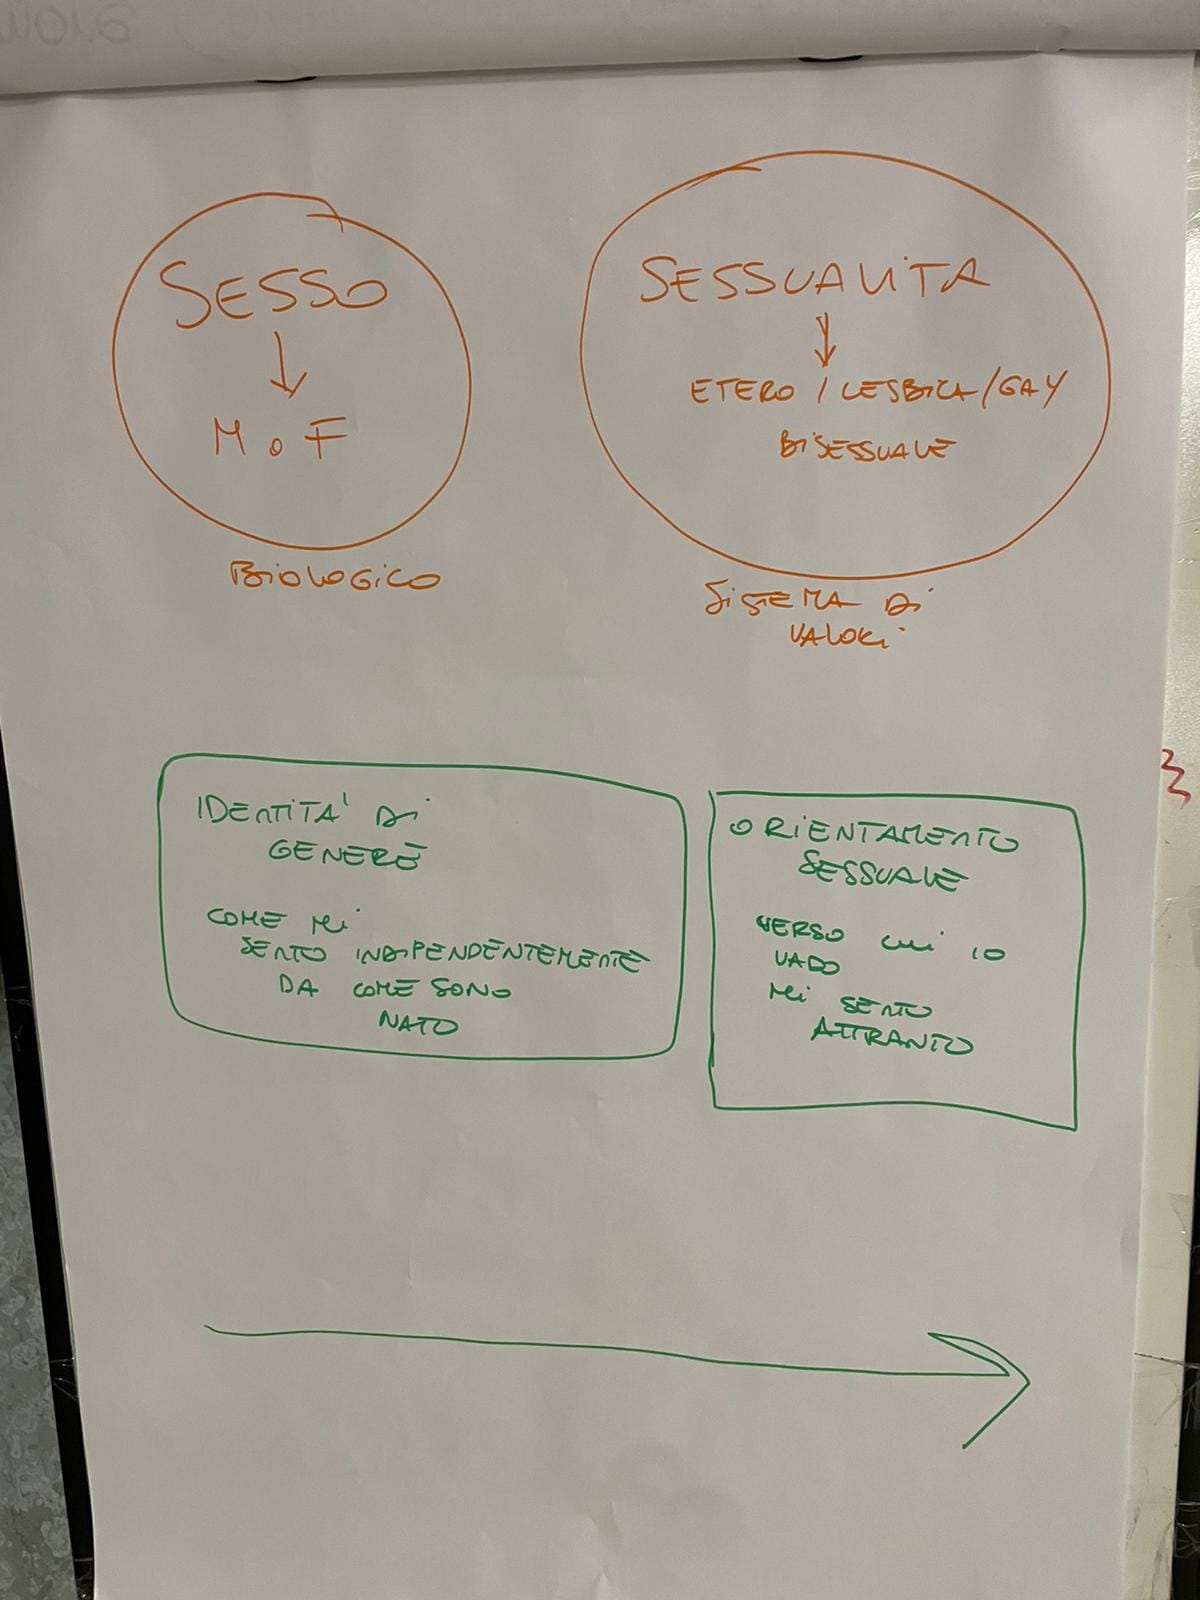 SESSO
M o F
BIOLOGICO
SESSUALITA
ETERO / LESBICA / GAY
BISESSUALE
SISTEMA DI
VALORI
IDENTITA' DI
GENERE
COME MI
SENTO INDIPENDENTEMENTE
DA COME SONO
NATO
ORIENTAMENTO
SESSUALE
VERSO CUI IO
VADO
MI SENTO
ATTRANTO